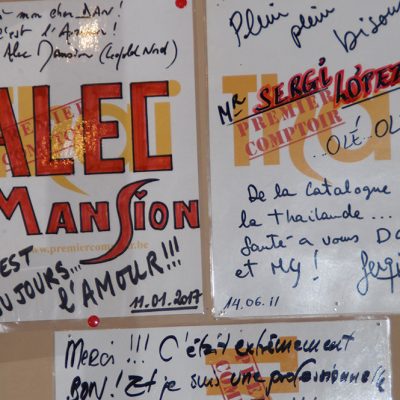 à mon cher DAN!
c'est l'Amour!
Alec Mansion (Léopold Nord)
ALEC
PREMIER
COMPTOIR
Thaï
MANSION
www.premiercomptoir.be
C'EST
TOUJOURS...
l'AMOUR!!!
11.01.2017
Plein plein
bisou
Mr SERGI LÓPEZ
PREMIER
COMPTOIR
Thaï
!
...OLÉ...OL
De la Catalogne
la Thaïlande...
Santé a vous D
et MY!
Sergi
14.06.11
Merci!!! C'était extrêmement
BON! Et je suis une professionnelle